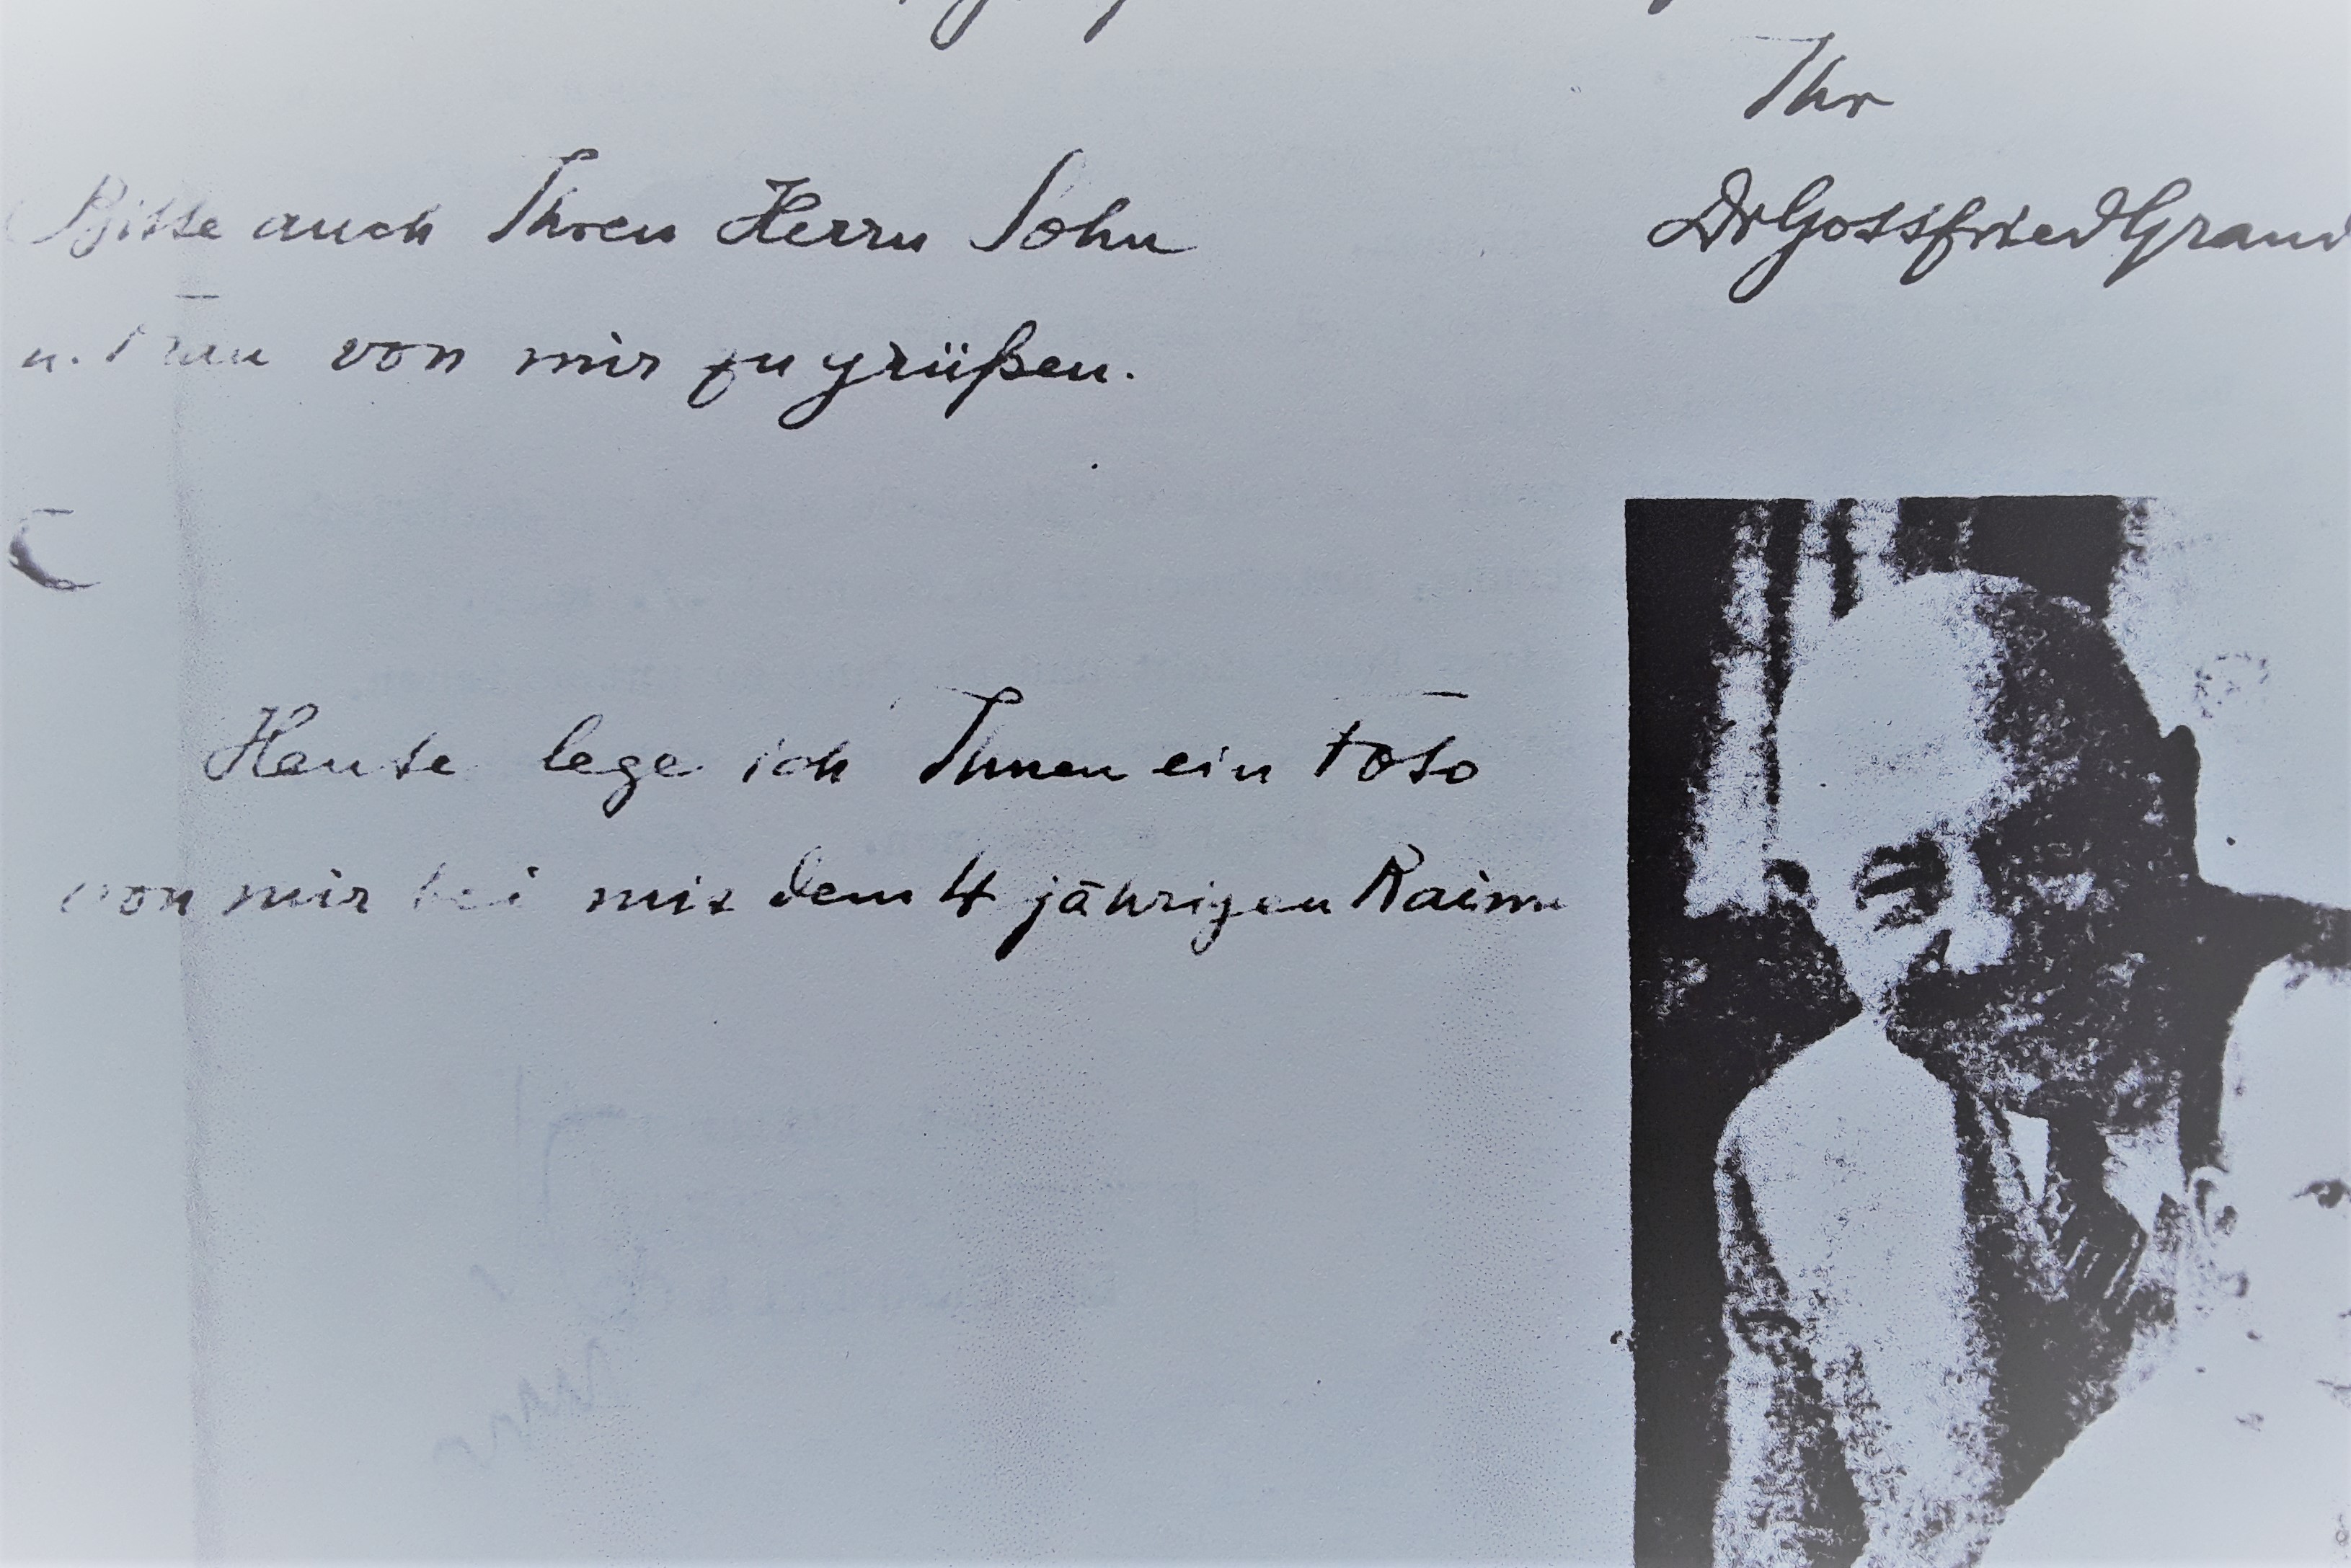 Ihr
Dr Gottfried Grand
Bitte auch Ihren Herrn Sohn
u. Frau von mir zu grüßen.
Heute lege ich Ihnen ein Foto
von mir bei mit dem 4 jährigen Raim